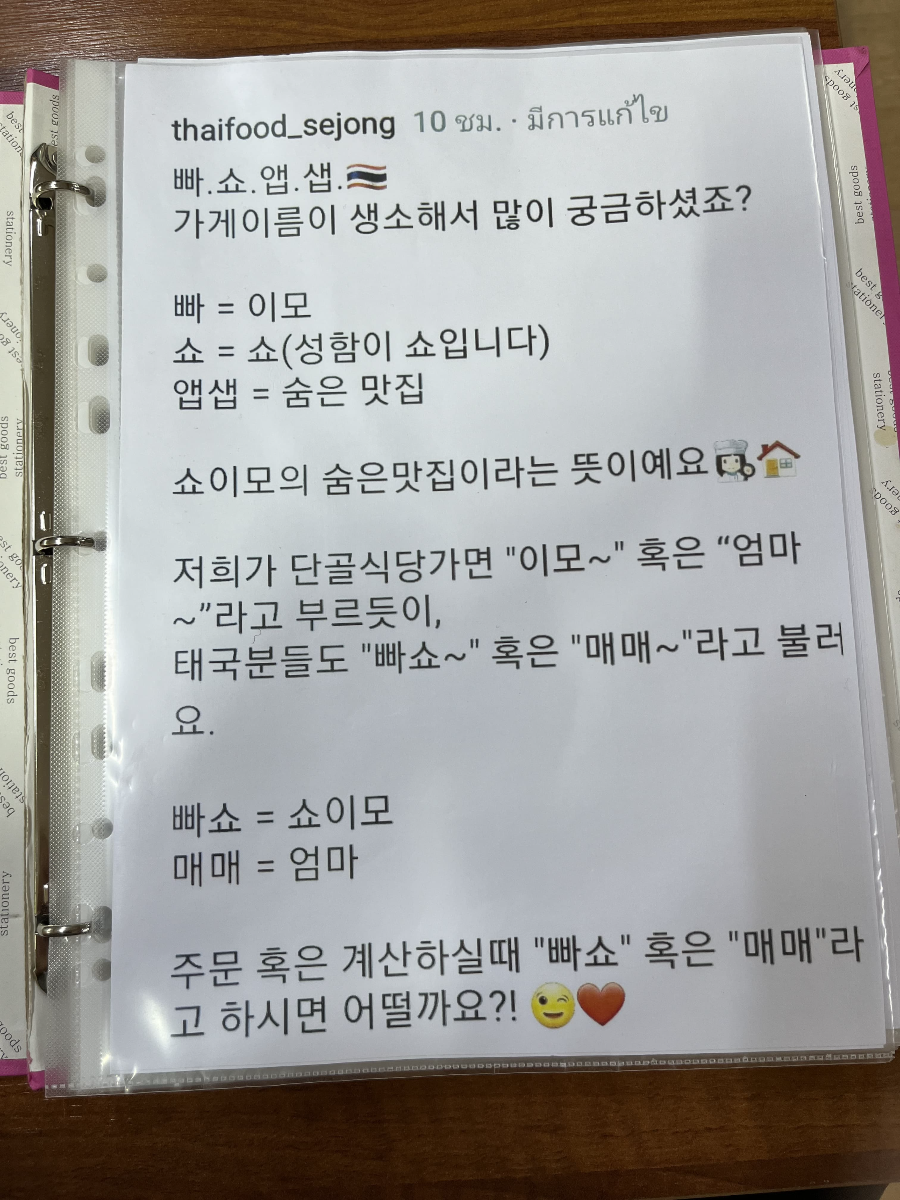 thaifood_sejong 10 ชม. · มีการแก้ไข
빠.쇼.앱.샙.🇹🇭
가게이름이 생소해서 많이 궁금하셨죠?
빠 = 이모
쇼 = 쇼(성함이 쇼입니다)
앱샙 = 숨은 맛집
쇼이모의 숨은맛집이라는 뜻이예요👩🏻‍🍳🏠
저희가 단골식당가면 "이모~" 혹은 “엄마
~”라고 부르듯이,
태국분들도 "빠쇼~" 혹은 "매매~"라고 불러
요.
빠쇼 = 쇼이모
매매 = 엄마
주문 혹은 계산하실때 "빠쇼" 혹은 "매매"라
고 하시면 어떨까요?! 😉❤️
best goods
stationery
best goods
stationery
best goods
stationery
best goods
best goods
stationery
best goods
stationery